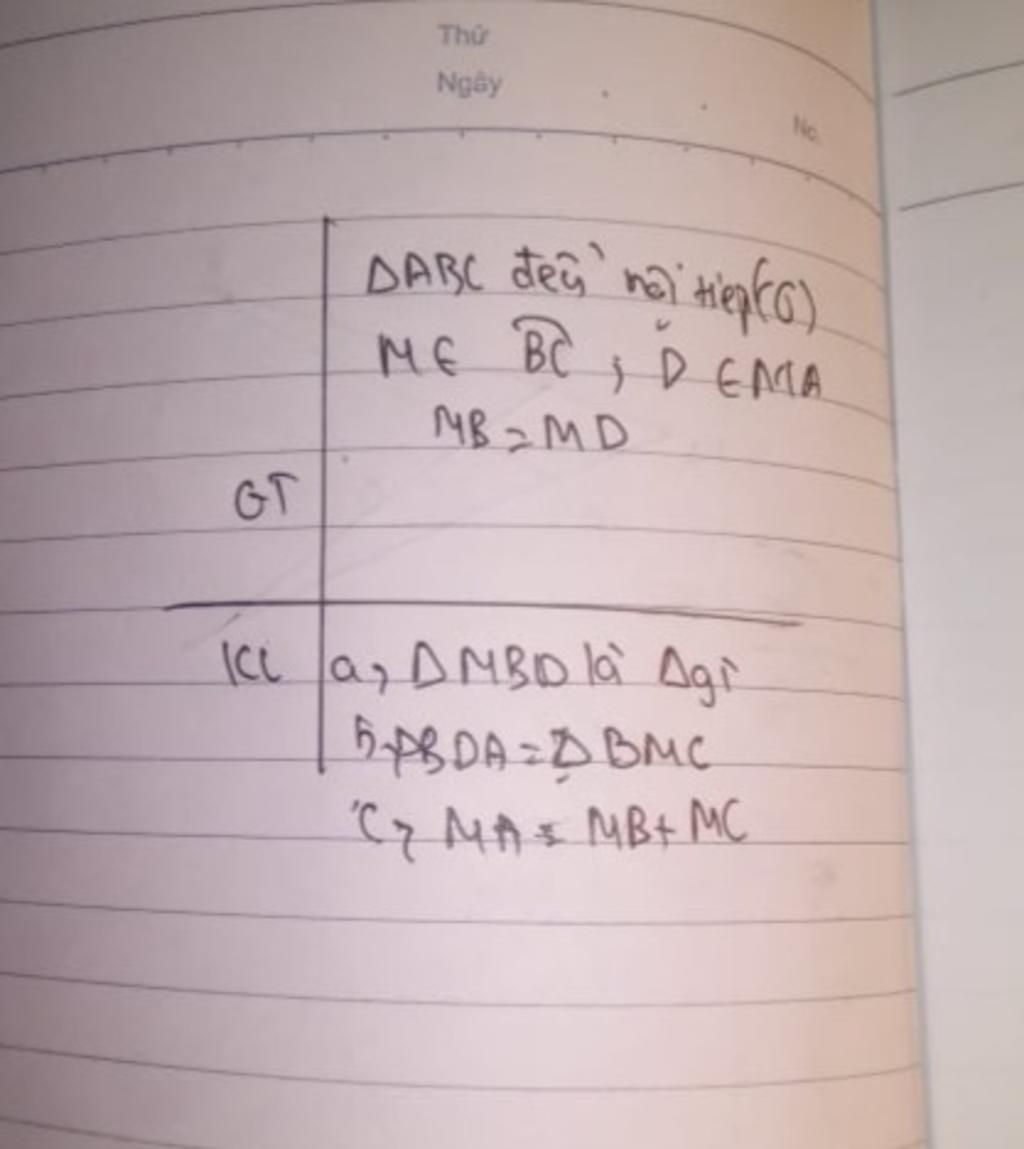 Thứ
Ngày
No.
ΔABC đều nội tiếp (O)
M ∈ BC ; D ∈ MA
MB = MD
GT
KL a, ΔMBD là Δ gì
b, ΔBDA = ΔBMC
c, MA = MB + MC